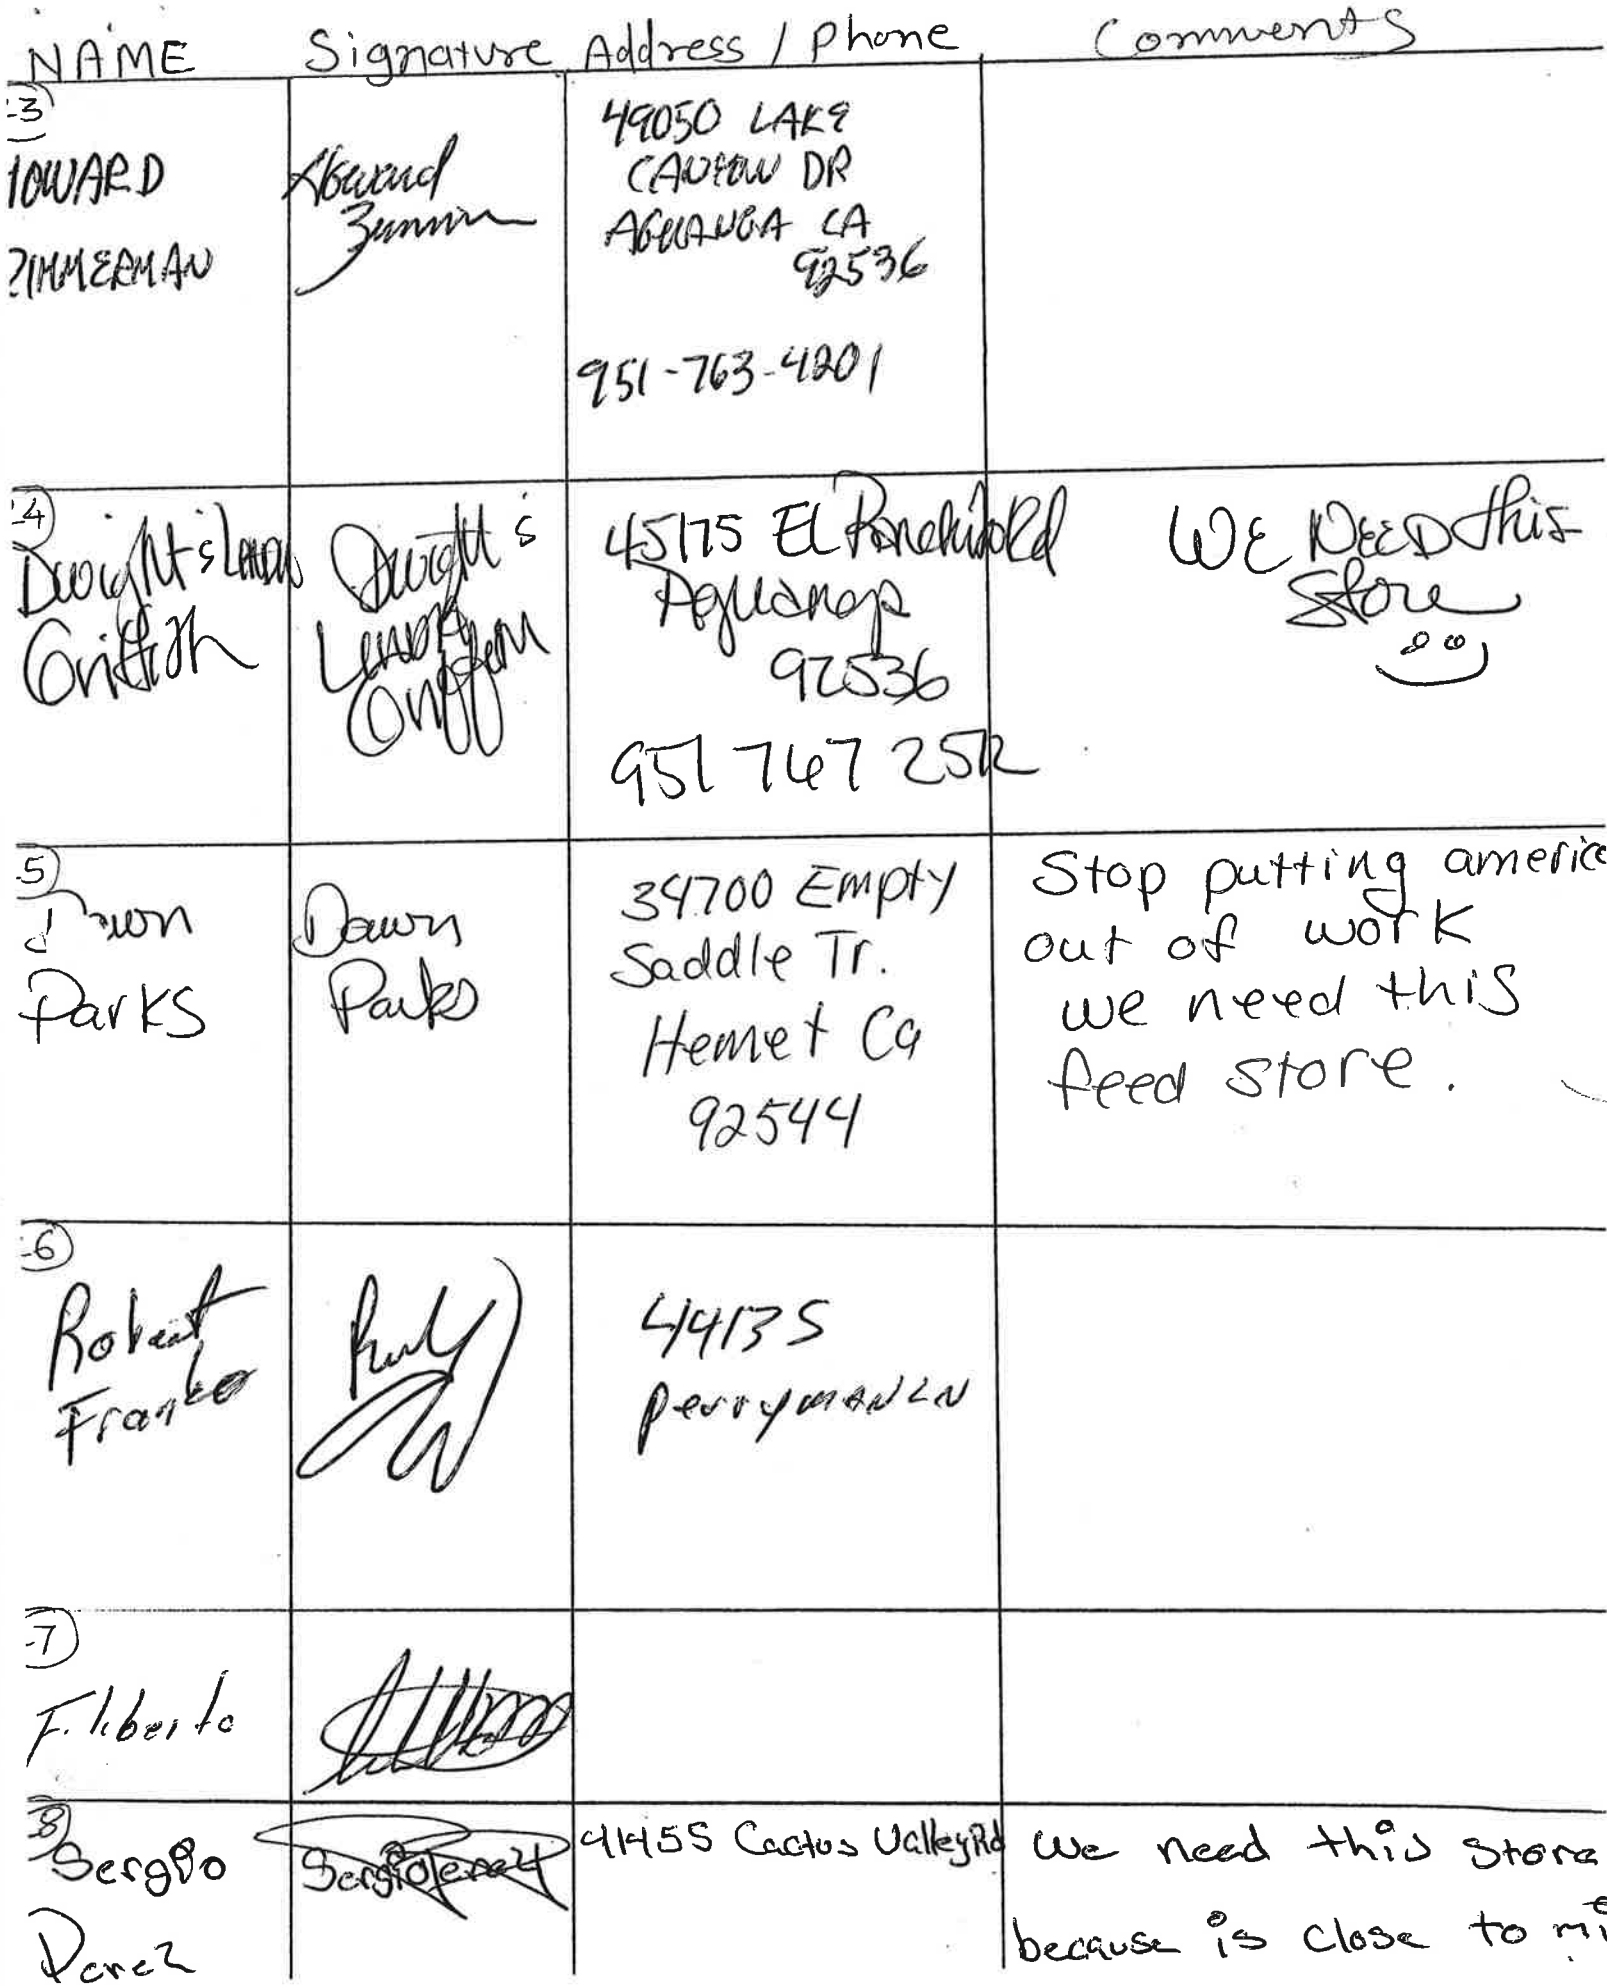 NAME Signature Address / Phone Comments
3
HOWARD
ZIMMERMAN
Howard
49050 LAKE
CANYON DR
AGUANGA CA
92536
951-763-4201
4
Dwight &
Griffith
Dwight &
Lenora
Griffith
45175 El Rd
Aguanga
92536
951 767 2512
WE NEED this
Store
5
Dawn
Parks
Dawn
Parks
34700 Empty
Saddle Tr.
Hemet Ca
92544
Stop putting america
out of work
we need this
feed store.
6
Robert
44135
perrymAN LN
7
Filiberto
8
Sergio
Perez
Sergio Perez
41455 Cactus Valley Rd
we need this store
because is close to mi